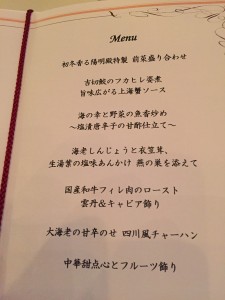 Menu
初冬香る陽明殿特製 前菜盛り合わせ
吉切鮫のフカヒレ姿煮
旨味広がる上海蟹ソース
海の幸と野菜の魚香炒め
～塩漬唐辛子の甘酢仕立て～
海老しんじょうと衣笠茸、
生湯葉の塩味あんかけ 燕の巣を添えて
国産和牛フィレ肉のロースト
雲丹&キャビア飾り
大海老の甘辛のせ 四川風チャーハン
中華甜点心とフルーツ飾り